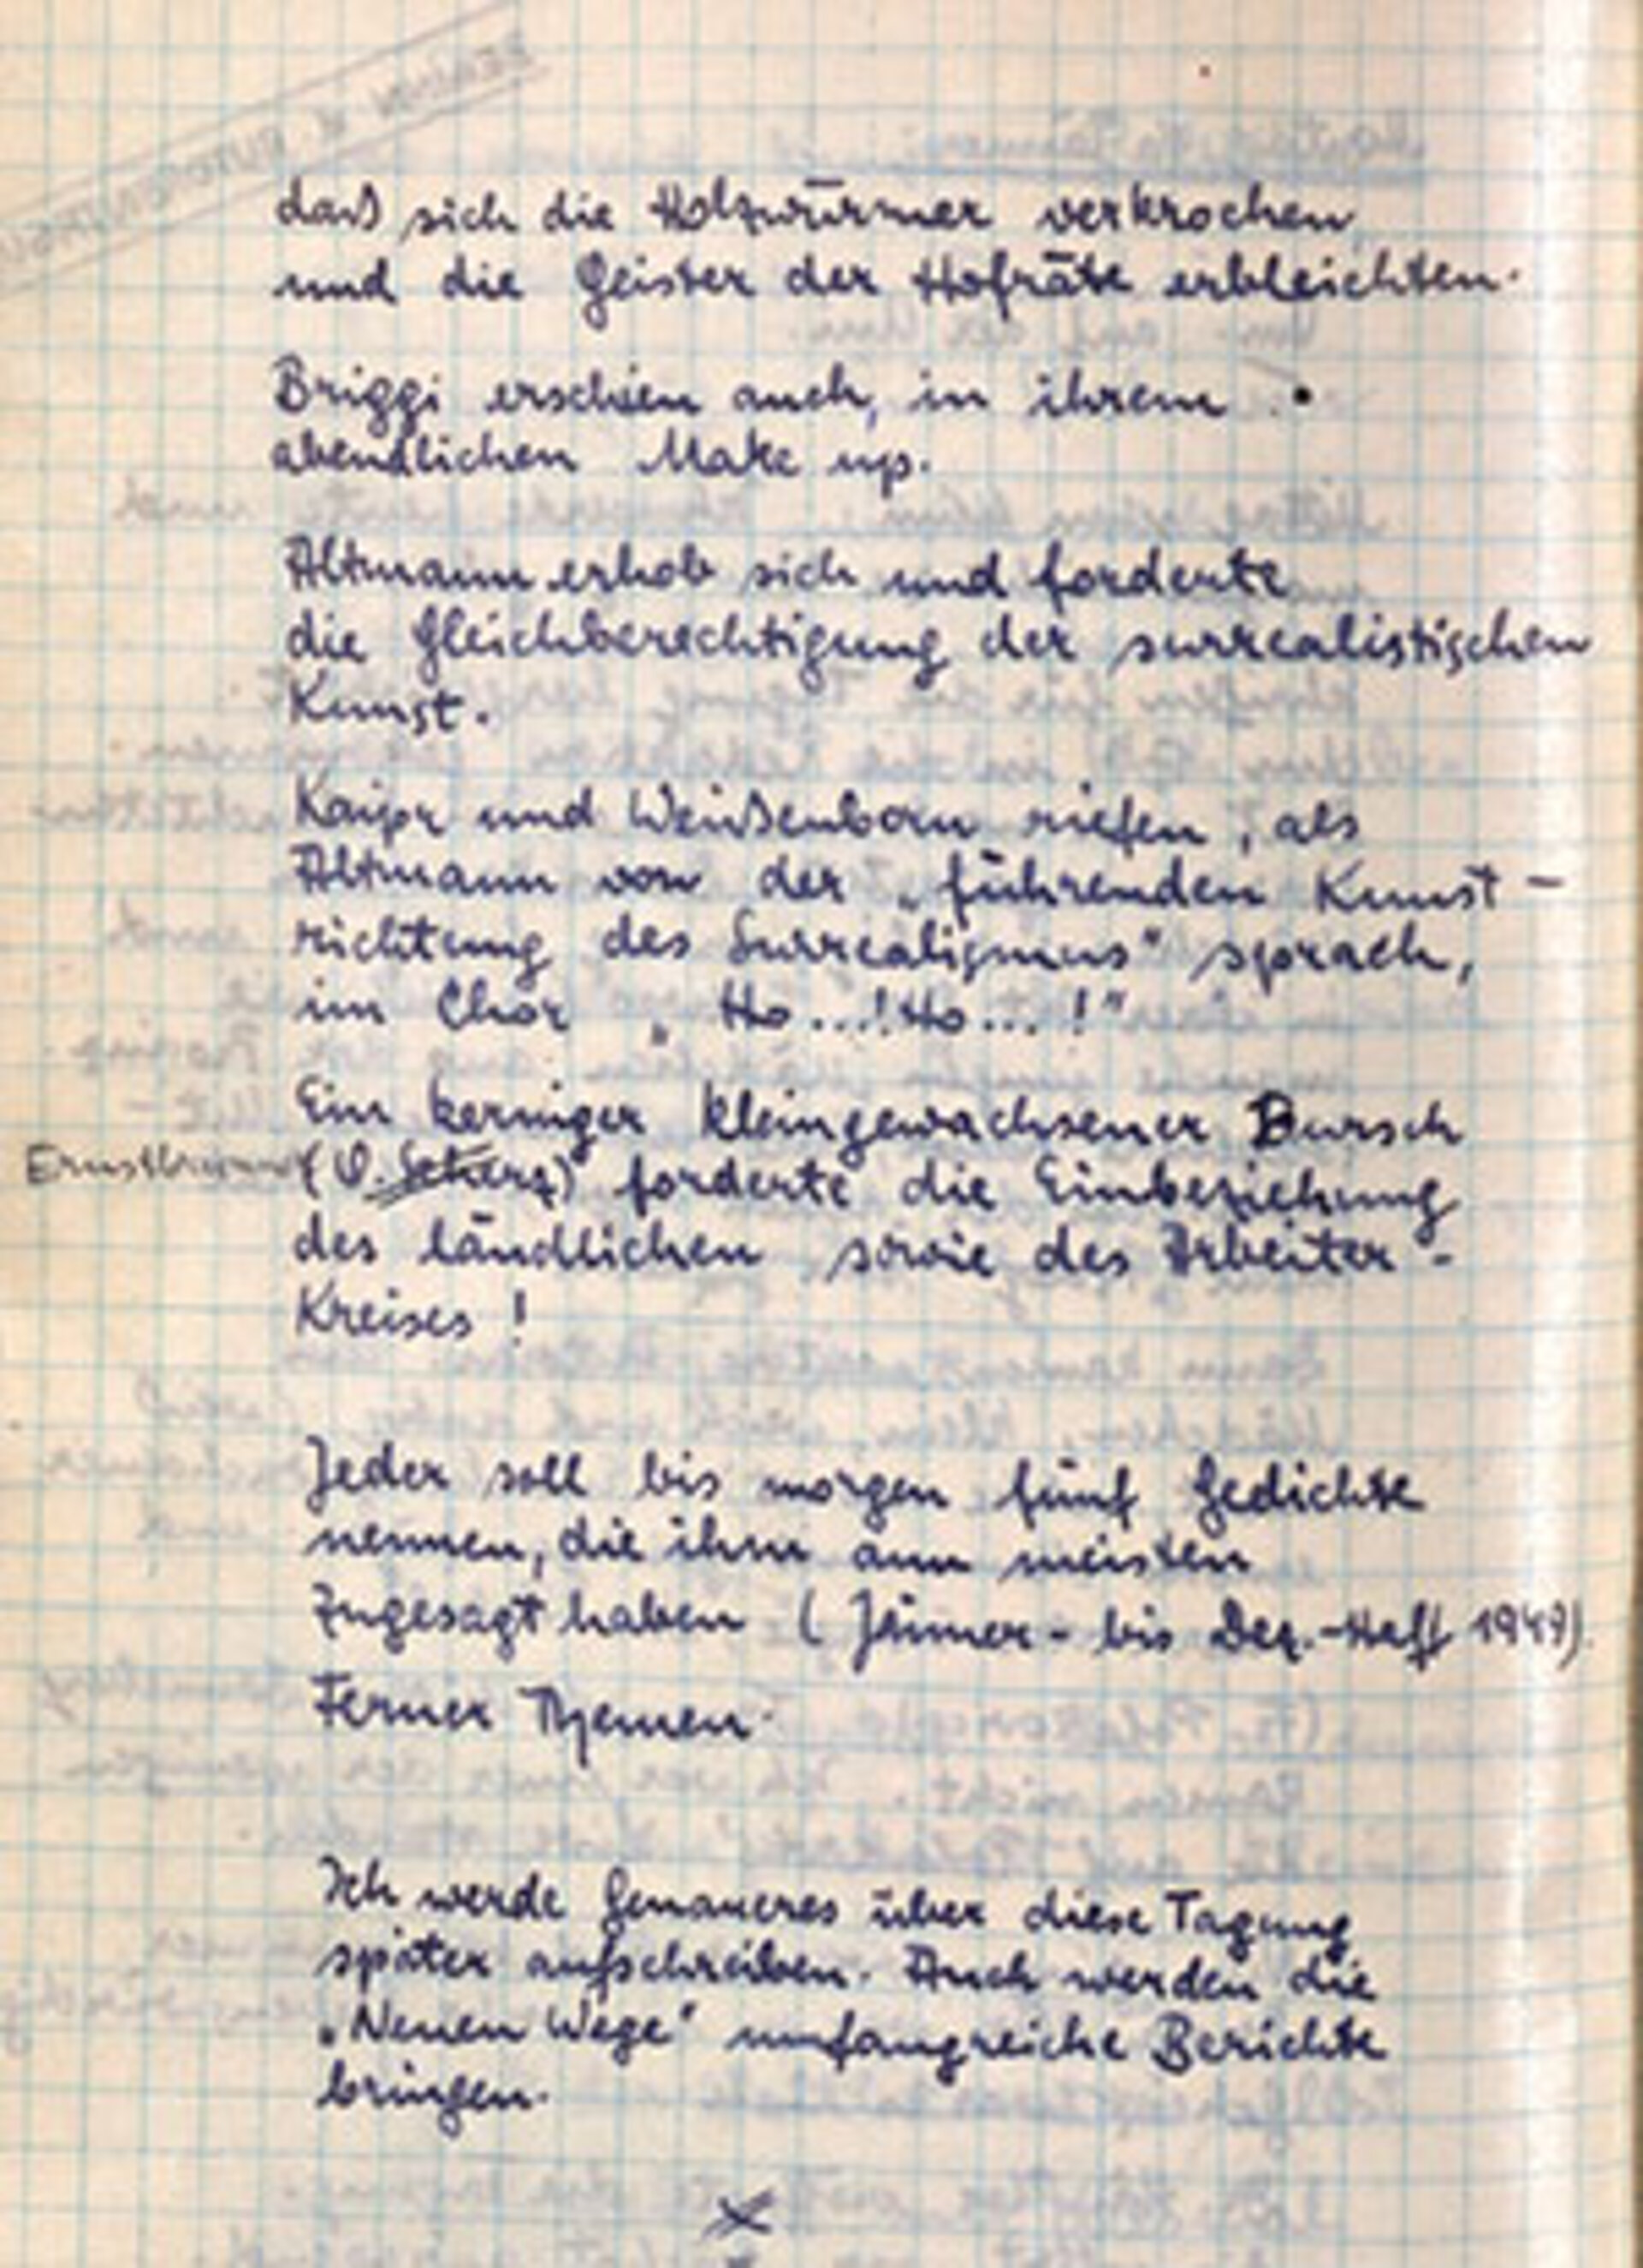 daß sich die Holzwürmer verkrochen
und die Geister der Hofräte erbleichten.
Briggi erschien auch, in ihrem
abendlichen Make up.
Altmann erhob sich und forderte
die Gleichberechtigung der surrealistischen
Kunst.
Kaipr und Weißenborn riefen, als
Altmann von der „führenden Kunst-
richtung des Surrealismus" sprach,
im Chor „Ho...! Ho...!"
Ein kerniger kleingewachsener Bursch
Ernstbrunn (V. Scherz) forderte die Einbeziehung
des ländlichen sowie des Arbeiter-
Kreises!
Jeder soll bis morgen fünf Gedichte
nennen, die ihm am meisten
Zugesagt haben (Jänner- bis Dez.-Heft 1949)
Ferner Themen.
Ich werde Genaueres über diese Tagung
später aufschreiben. Auch werden die
„Neuen Wege" umfangreiche Berichte
bringen.